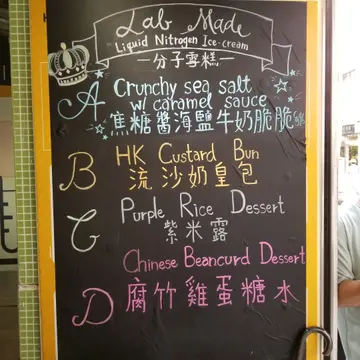 Lab Made
Liquid Nitrogen Ice-cream
一分子雪糕一
A Crunchy sea salt
w/ caramel sauce
焦糖醬海鹽牛奶脆脆
B HK Custard Bun
流沙奶皇包
C Purple Rice Dessert
紫米露
Chinese Beancurd Dessert
D 腐竹雞蛋糖水